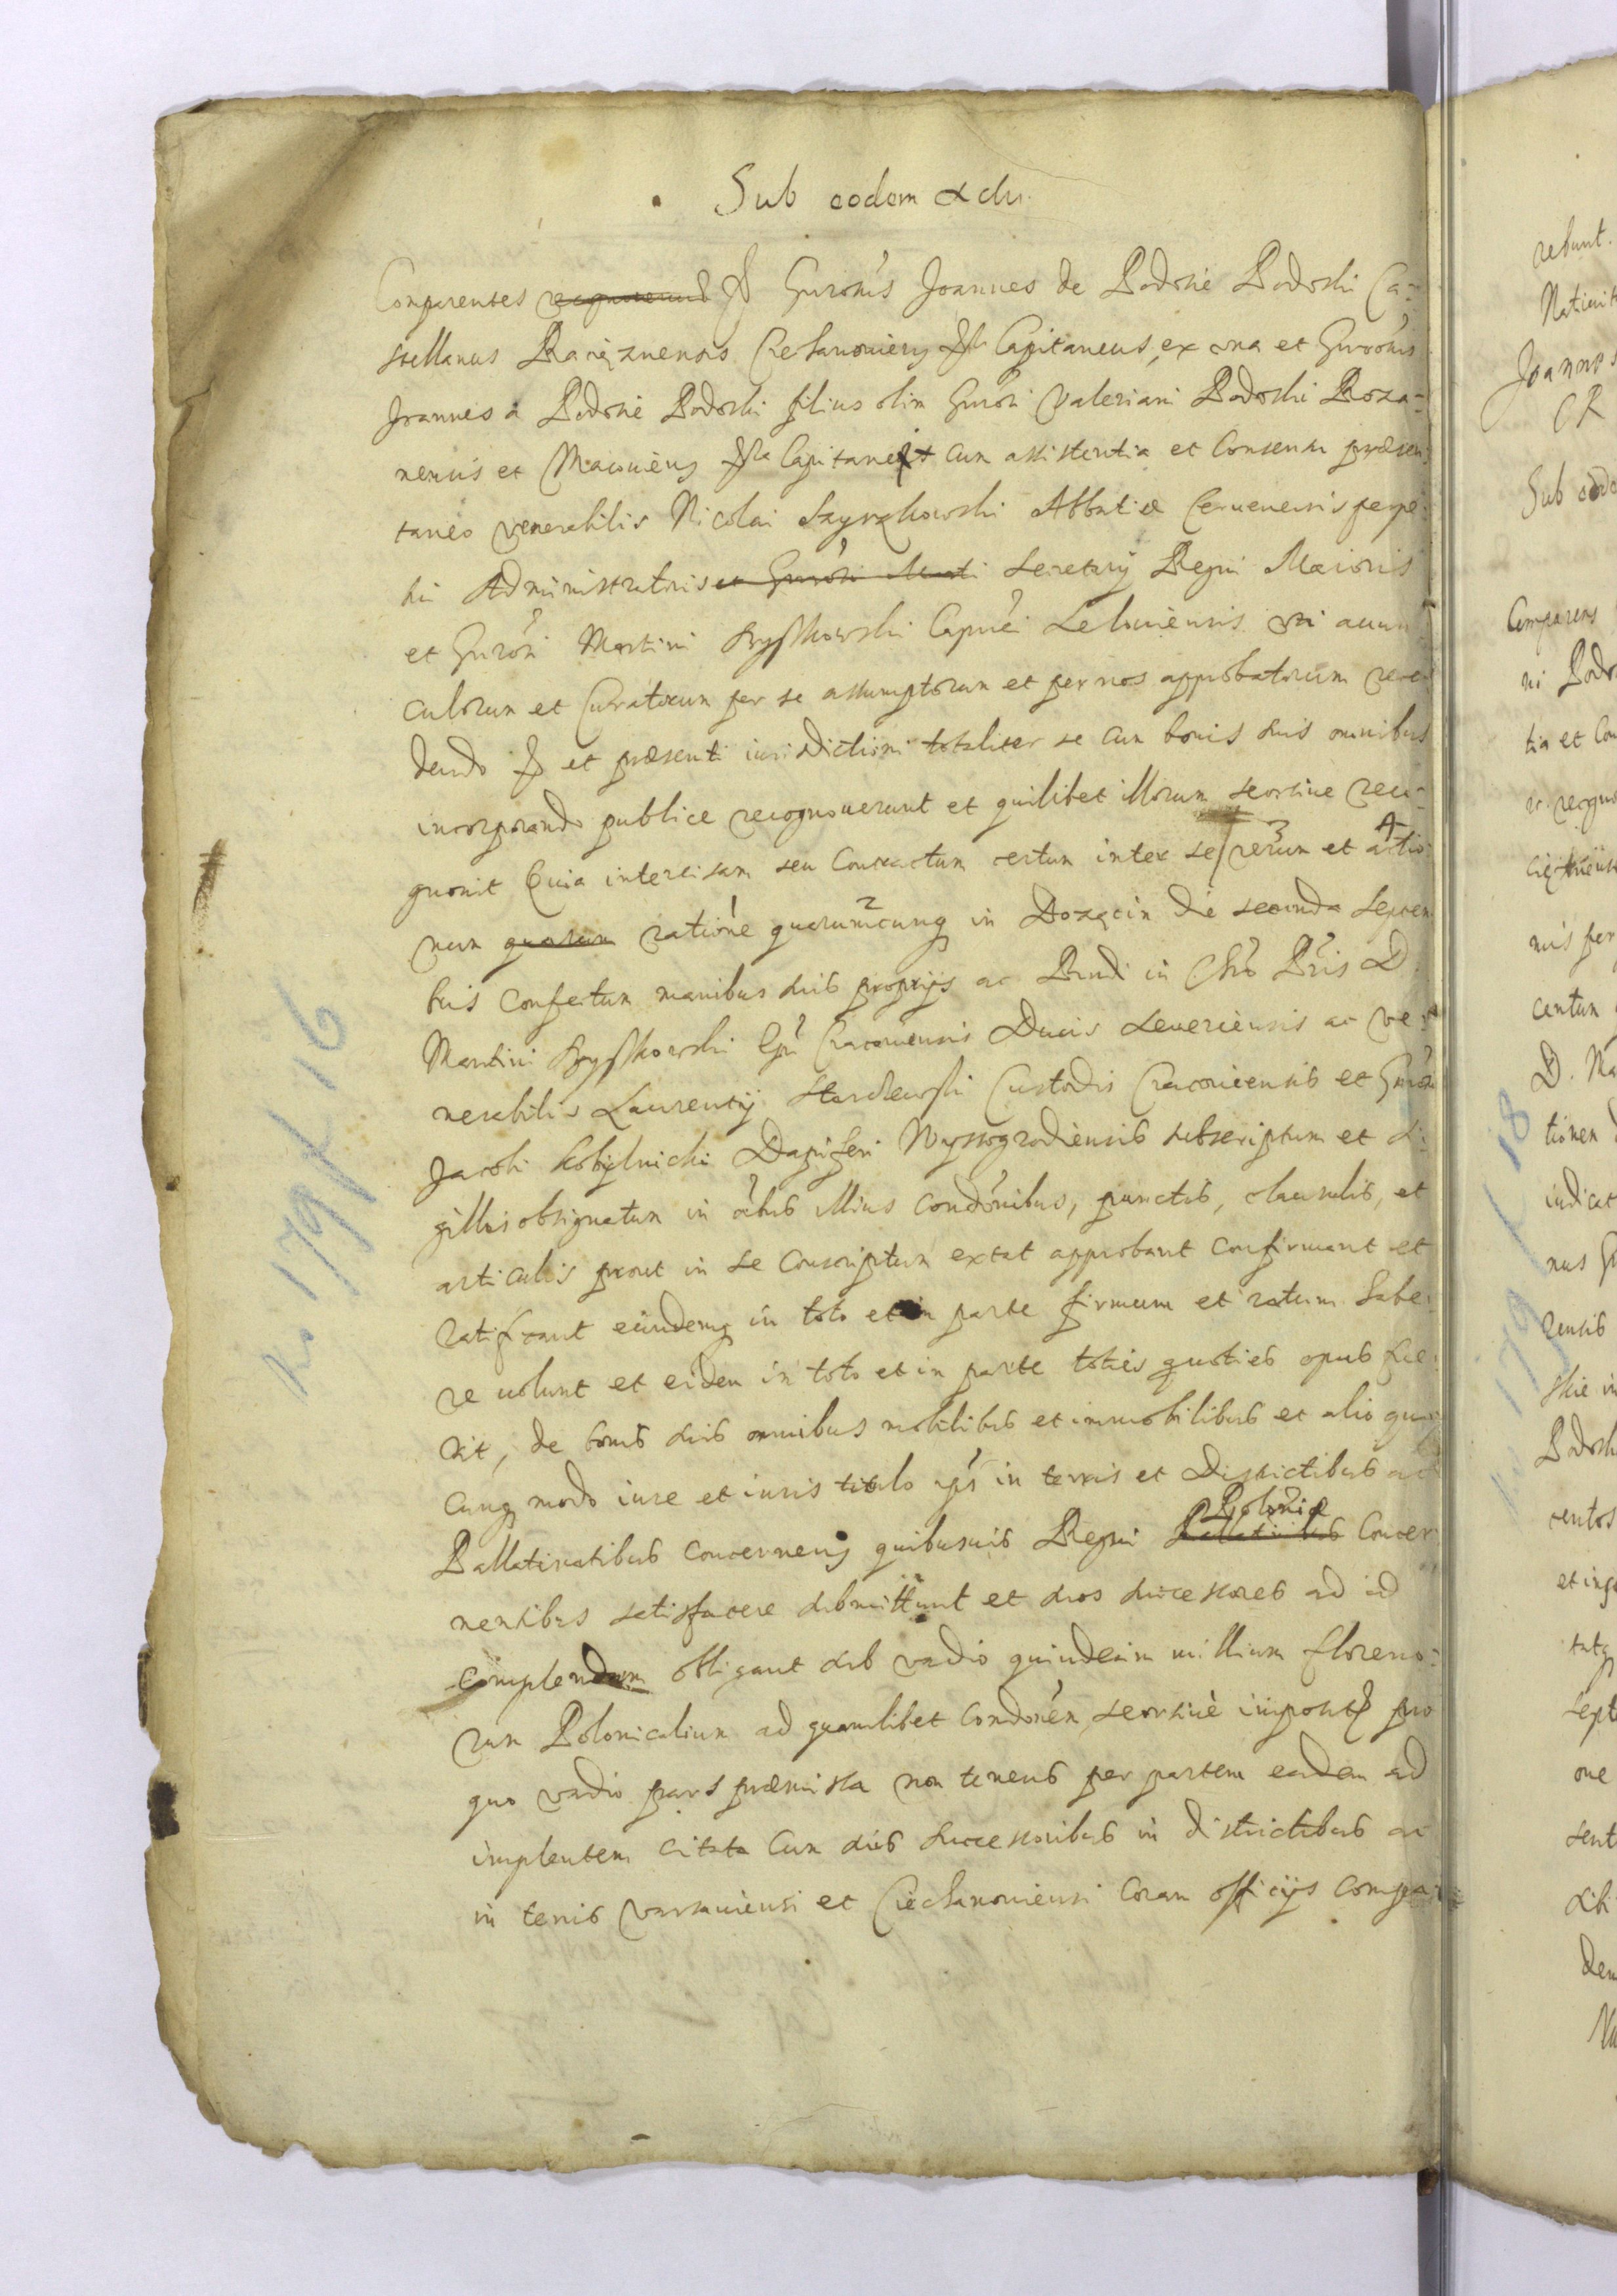 Sub eodem actu
Comparentes recognoverunt Gnrosus Joannes de Podosie Podoski Ca-
stellanus Raciąznensis Ciechanovieng Capitaneus ex una et Gnrosus
Joannes a Podosie Podoski filius olim Gnrosi Valeriani Podoski Roza-
nensis et Macovieng Capitanei cum assistentia et consensu præsen
taneo venerabilis Nicolai Szyszkowski Abbatiæ Cervenensis perpe
tui Administratoris et Gnrosi Marti Secretarij Regni Maioris
et Gnrosi Martini Szyszkowski Capnei Leloviensis uti avun
culorum et Curatorum per se assumptorum et per nos approbatorum rece
dendo et præsenti iurisdictioni totaliter se cum bonis suis omnibus
incorporando publice recognoverunt et quilibet illorum seorsive reco-
gnovit Quia intercisam seu Contractum certum inter se rerum et actio
num quarum ratione quarumcunq in Bozęcin die secunda Septem
bris confectum manibus suis proprijs ac Rndi in Chro Pris D
Martini Szyszkowski Epi Cracoviensis Ducis Severiensis ac ve-
nerabilis Laurentij Custodis Cracoviensis et Gnrosi
Jacobi Kobylnicki Dapiferi Wyssogrodiensis subscriptum et si-
gillis obsignatum in oibus illius condonibus, punctis, clausulis, et
articulis prout in se conscriptum extat approbant confirmant et
ratificant eundemq in toto et in parte firmum et ratum habe-
re volunt et eidem in toto et in parte toties quoties opus fue-
rit, de bonis suis omnibus mobilibus et immobilibus et alio quo-
cunq modo iure et iuris titulo ips in terris et Districtibus ac
Poloniæ
Pallatinatibus concerneng quibusvis Regni Pallatinatibus Concer
nentibus satisfacere submittunt et suos successores ad id
complendum obligant sub vadio quindecim millium floreno-
rum Polonicalium ad quamlibet condonem seorsive imposit pro
quo vadio pars præmissa non tenens per partem eadem ad
implentem citata cum suis successoribus in districtibus ac
in terris Varsaviensi et Ciechanoviensi coram officijs compa-
179 f 16
rebunt.
Nativit
Joannes
CR
Sub eode
Comparens
ni Podo
tia et Con
centum
D. Ma
tionem
indicat
nus
rensis
skie in
Podosk
centos
et insc
sept
one
sent
sibi
dem
179 f 18